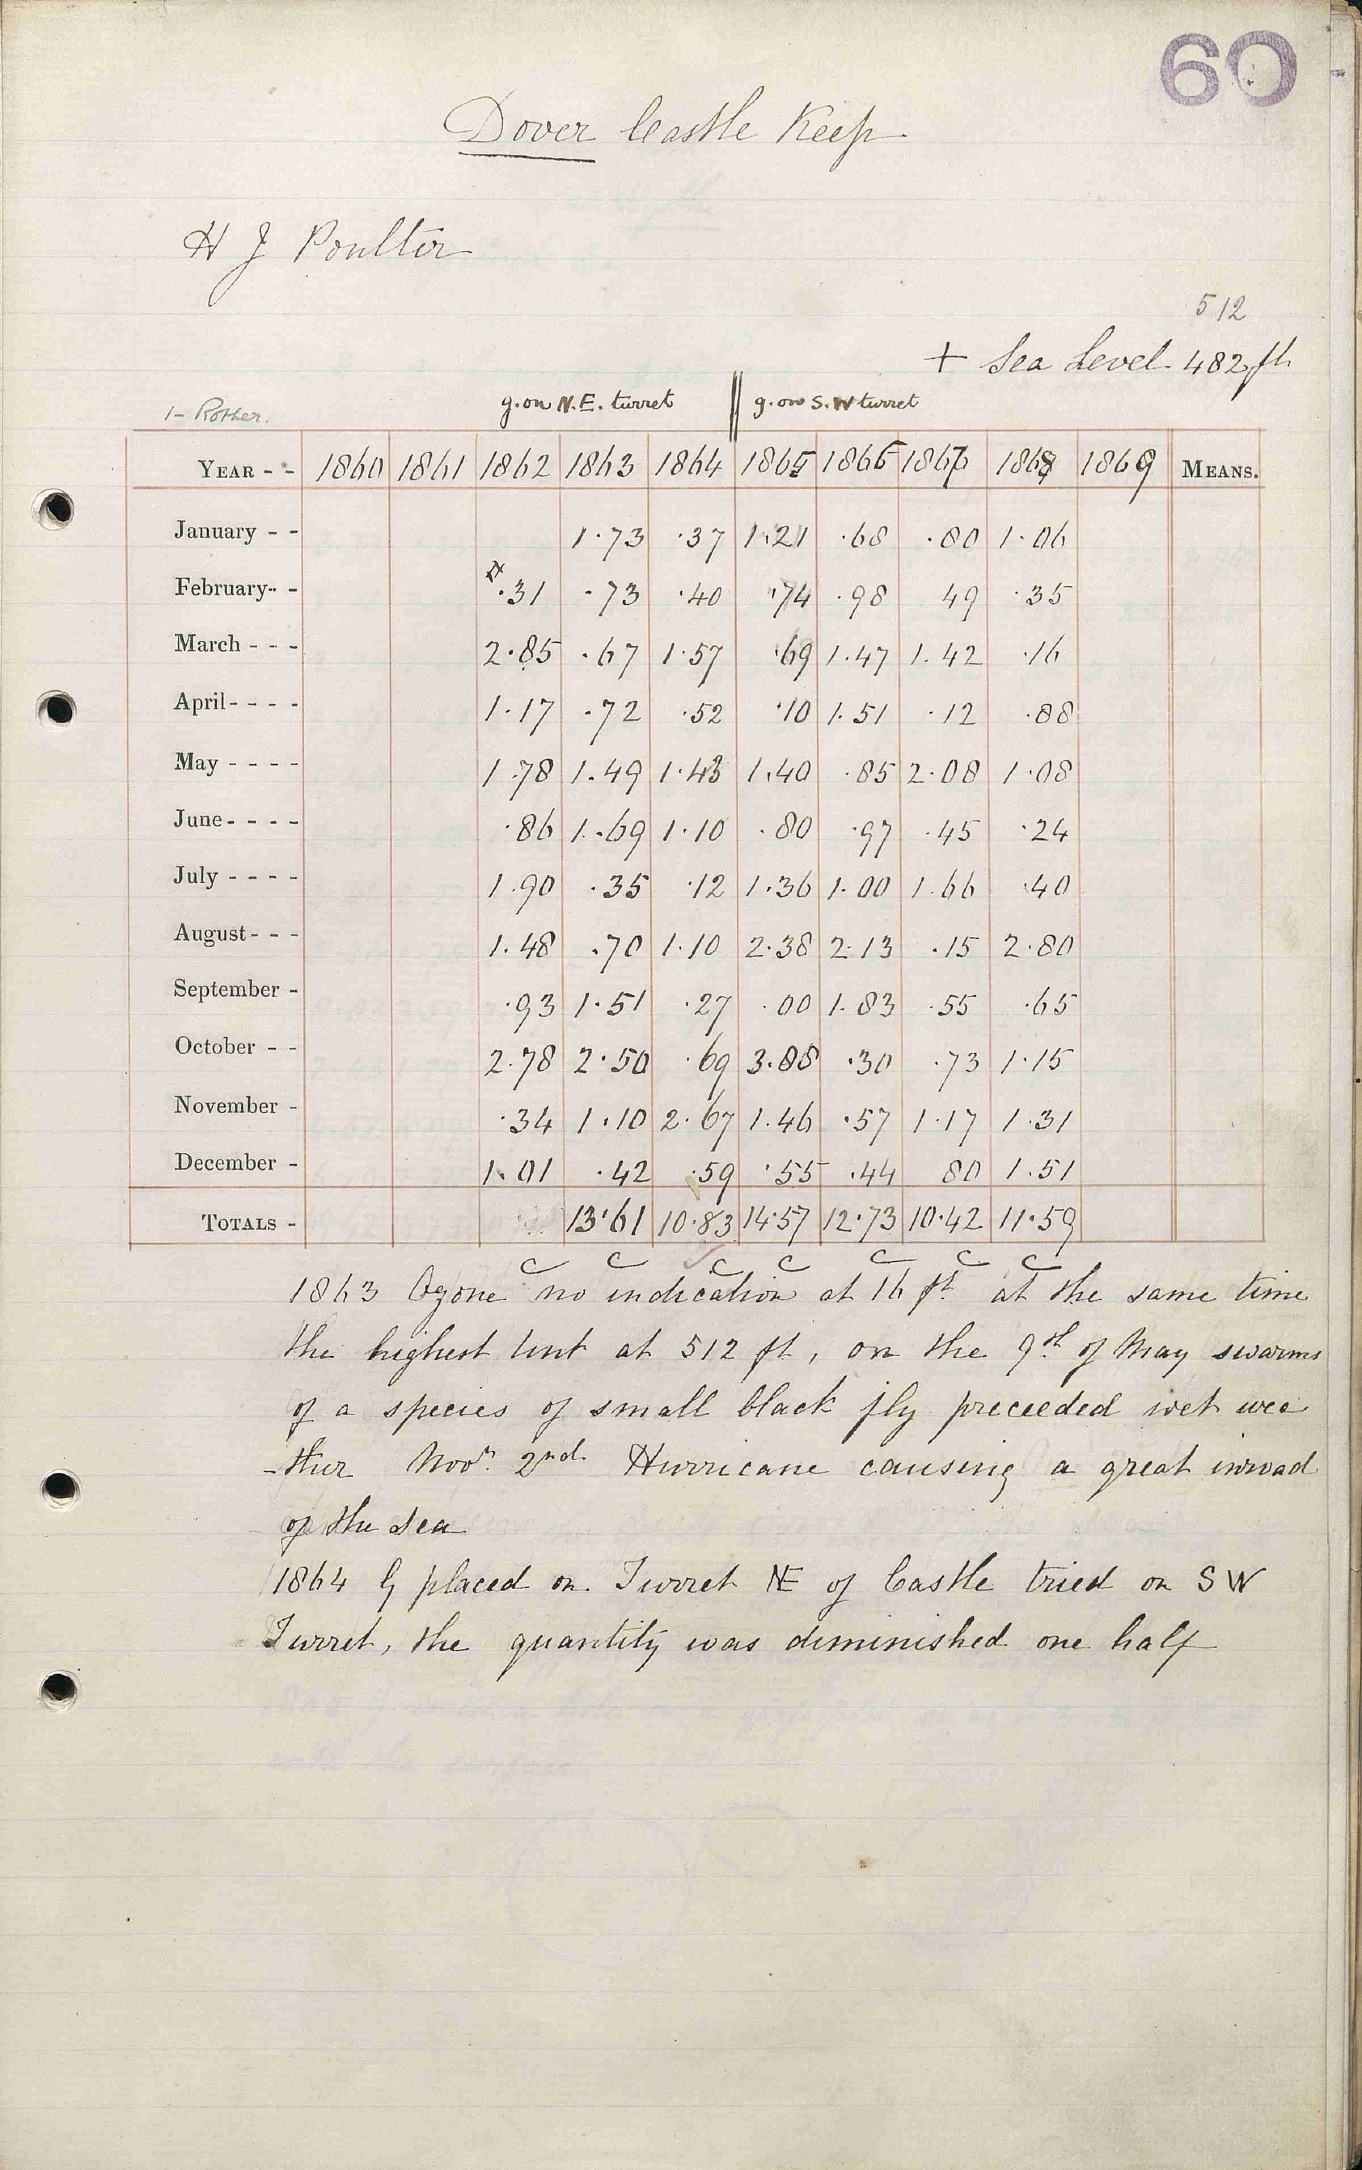 60
Dover Castle Keep
H J Poulter
512
+ Sea Level 482 ft
1- Rother. g. on N.E. turret g. on S.W turret
YEAR - - 1860 1861 1862 1863 1864 1865 1866 1867 1868 1869 MEANS.
January - - 1.73 .37 1.21 .68 .80 1.06
February - - .31 .73 .40 .74 .98 49 .35
March - - - 2.85 .67 1.57 .69 1.47 1.42 .16
April - - - - 1.17 .72 .52 .10 1.51 .12 .88
May - - - - 1.78 1.49 1.43 1.40 .85 2.08 1.08
June - - - - .86 1.69 1.10 .80 .97 .45 .24
July - - - - 1.90 .35 .12 1.36 1.00 1.66 .40
August - - - 1.48 .70 1.10 2.38 2.13 .15 2.80
September - .93 1.51 .27 .00 1.83 .55 .65
October - - 2.78 2.50 .69 3.88 .30 .73 1.15
November - .34 1.10 2.67 1.46 .57 1.17 1.31
December - 1.01 .42 .59 .55 .44 80 1.51
TOTALS - 13.61 10.83 14.57 12.73 10.42 11.59
c c c c c c c
1863 Ozone no indication at 16 ft at the same time
the highest tint at 512 ft, on the 9th of May swarms
of a species of small black fly preceeded wet wea
-ther Novr. 2nd Hurricane causing a great inroad
of the sea
1864 G placed on Turret NE of Castle tried on SW
Turret, the quantity was diminished one half